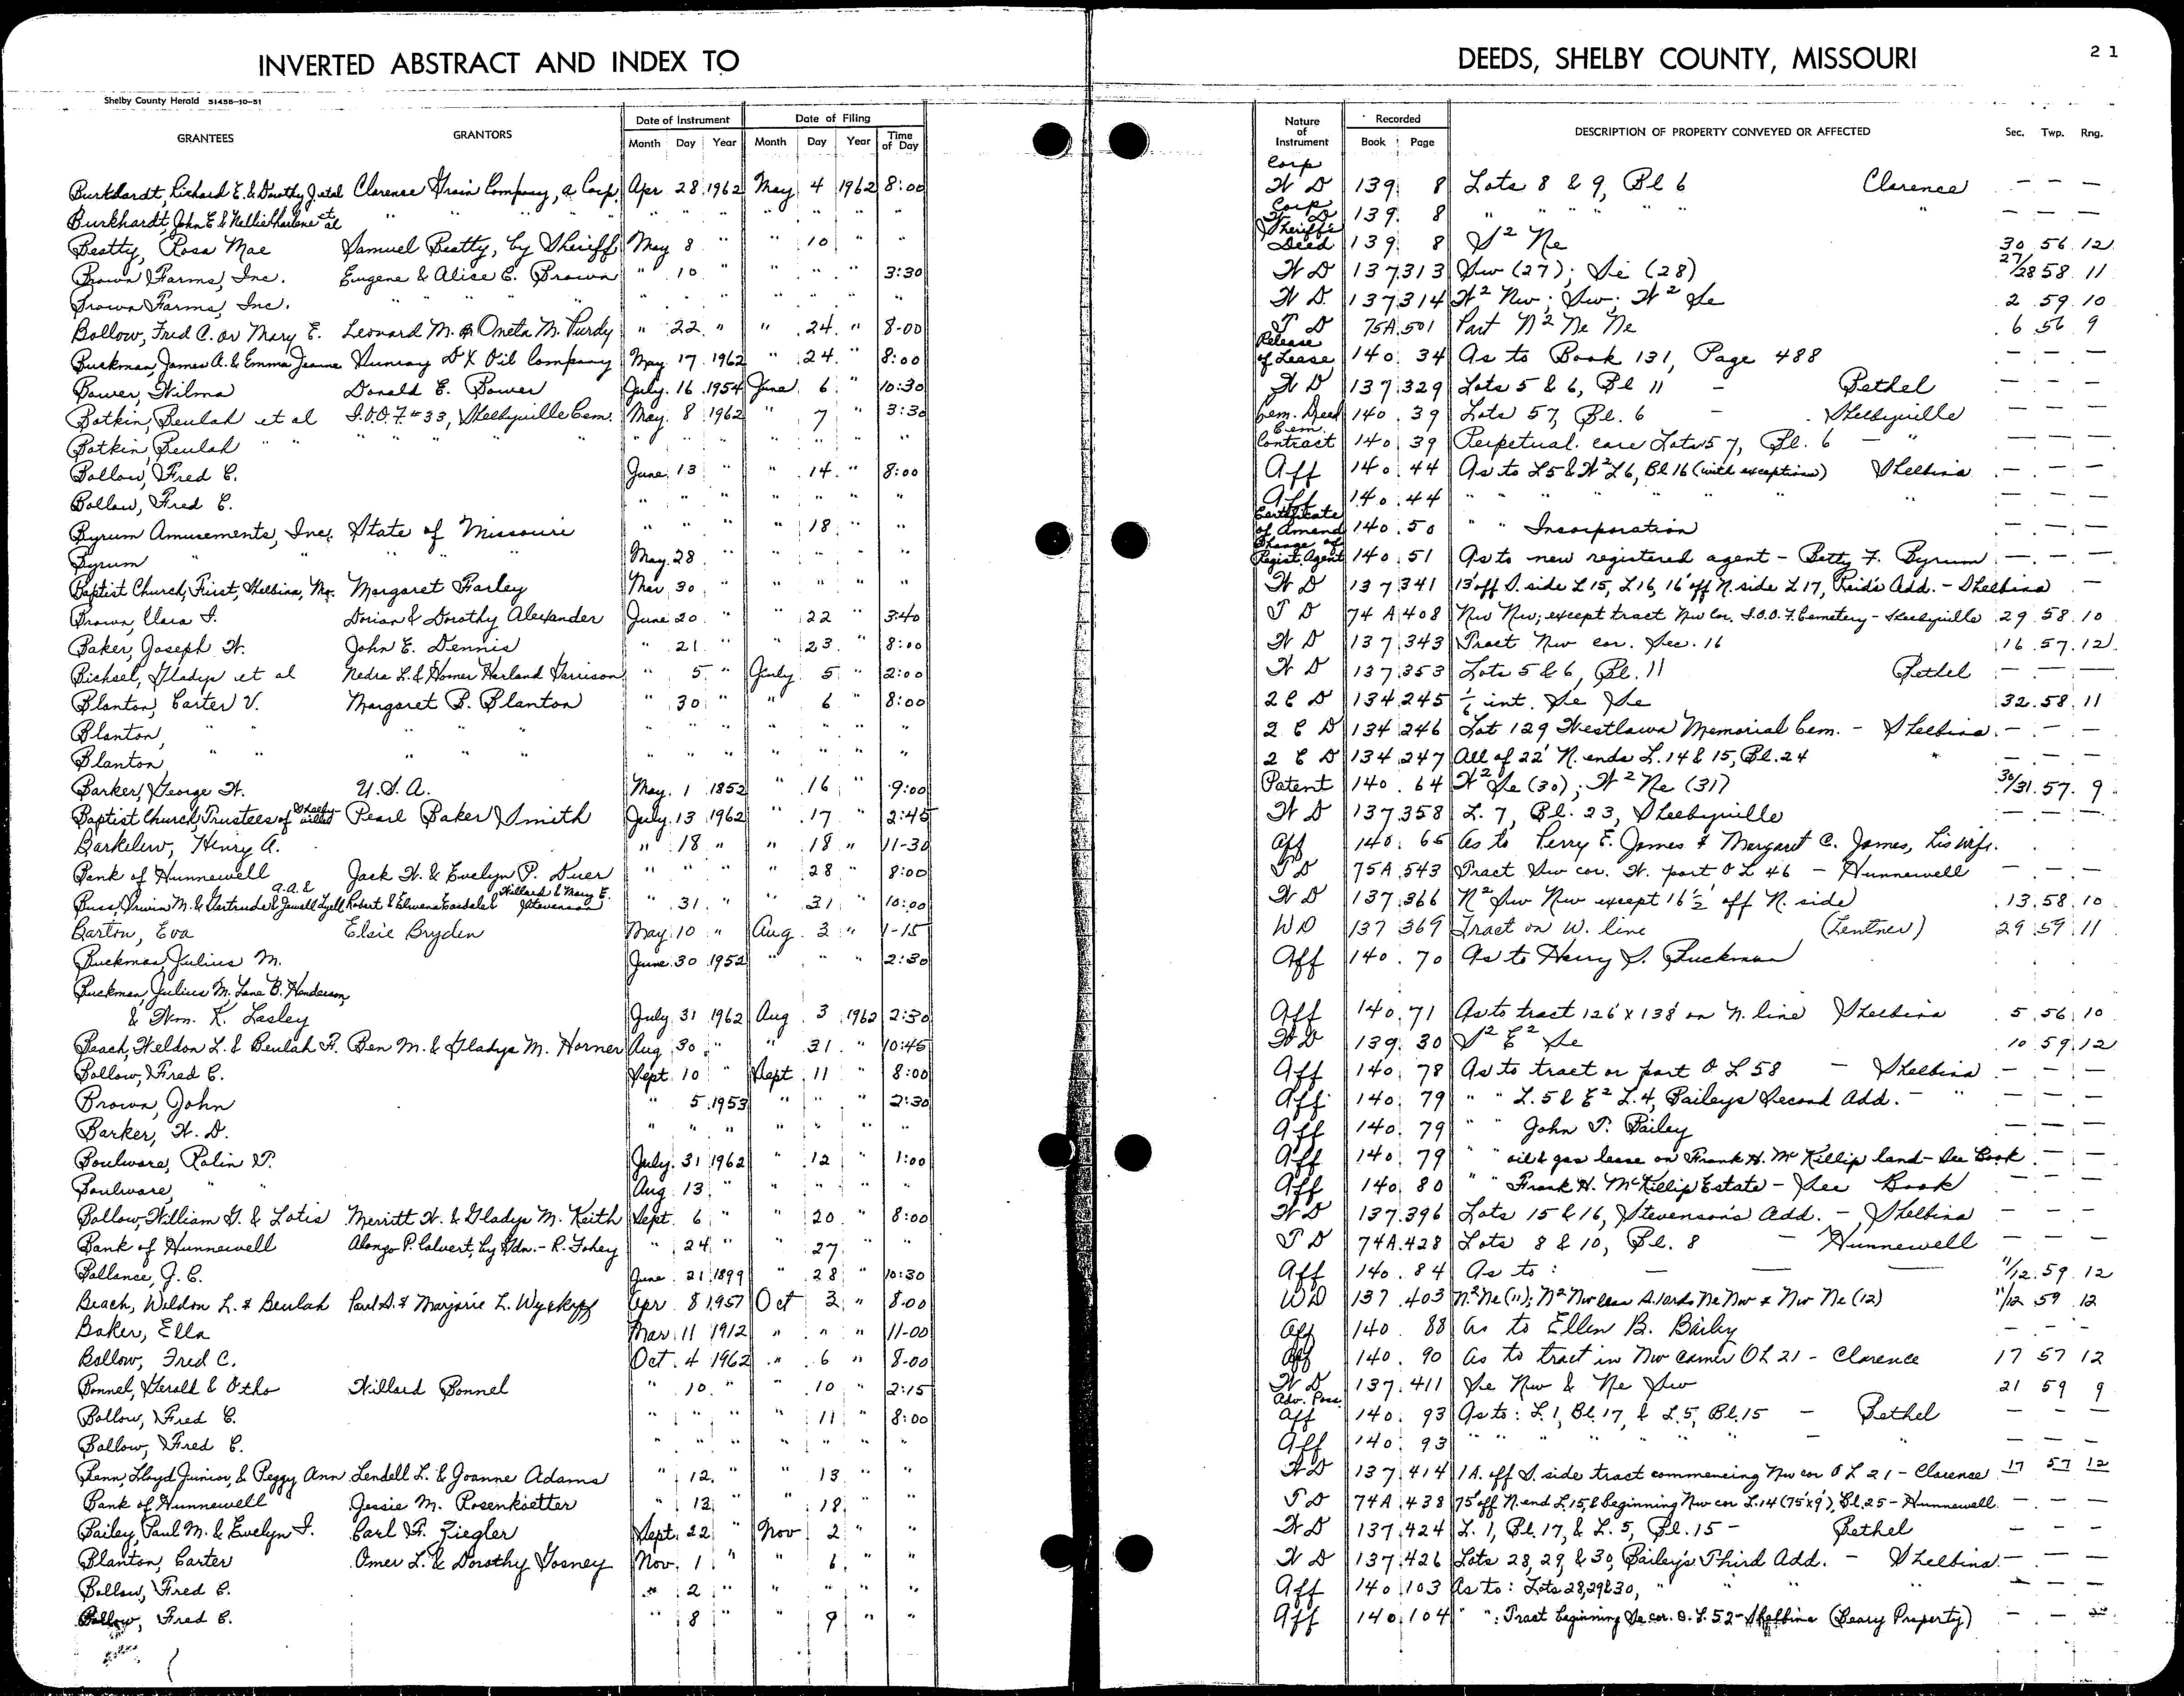 INVERTED ABSTRACT AND INDEX TO DEEDS, SHELBY COUNTY, MISSOURI 21
Shelby County Herald 51458-10-51
GRANTEES GRANTORS Date of Instrument Month Day Year Date of Filing Month Day Year Time of Day Nature of Instrument Recorded Book Page DESCRIPTION OF PROPERTY CONVEYED OR AFFECTED Sec. Twp. Rng.
Burkhardt, Richard E. & Dorothy J. et al Clarence Grain Company, a Corp. Apr 28 1962 May 4 1962 8:00 Corp W D 139 8 Lots 8 & 9, Bl 6 Clarence — — —
Burkhardt, John E & Nellie Charlene et al " " " " " " " " Corp W D 139 8 " " " " " " — — —
Beatty, Rosa Mae Samuel Beatty, by Sheriff May 8 " " 10 " " Sheriff's Deed 139 8 S² Ne 30 56 12
Brown Farms, Inc. Eugene & Alice C. Brown " 10 " " " " 3:30 W D 137 313 Sw (27); Se (28) 27/28 58 11
Brown Farms, Inc. " " " " " " " " " W D. 137 314 W² Nw; Sw; W² Se 2 59 10
Bollow, Fred C. or Mary E. Leonard M. & Oneta M. Purdy " 22 " " 24 " 8-00 T D 75A 501 Part N² Ne Ne 6 56 9
Buckman, James A. & Emma Jeanne Sunray D X Oil Company May 17 1962 " 24 " 8:00 Release of Lease 140 34 As to Book 131, Page 488 — — —
Bower, Wilma Donald E. Bower July 16 1954 June 6 " 10:30 W D 137 329 Lots 5 & 6, Bl 11 — Bethel — — —
Botkin, Beulah et al I.O.O.F. #33, Shelbyville Cem. May 8 1962 " 7 " 3:30 Cem. Deed 140 39 Lots 57, Bl. 6 — Shelbyville — — —
Botkin, Beulah " " " " " " " " Cem. Contract 140 39 Perpetual care Lots 57, Bl. 6 — " — — —
Bollow, Fred C. June 13 " " 14 " 8:00 Aff 140 44 As to L5 & W² L6, Bl 16 (with exceptions) Shelbina — — —
Bollow, Fred C. " " " " " " " Aff 140 44 " " " " " " — — —
Byrum Amusements, Inc. State of Missouri " " " " 18 " " Certificate of Amend 140 50 " " Incorporation — — —
Byrum " " " " May 28 " " " " " Change of Regist. Agent 140 51 As to new registered agent - Betty F. Byrum — — —
Baptist Church, First, Shelbina, Mo. Margaret Farley Mar 30 " " " " " W D 137 341 13' off S. side L 15, L 16, 16' off N. side L 17, Reid's Add. - Shelbina —
Brown, Clara I. Dorian & Dorothy Alexander June 20 " " 22 " 3:40 T D 74 A 408 Nw Nw; except tract Nw Cor. I.O.O.F. Cemetery - Shelbyville 29 58 10
Baker, Joseph W. John E. Dennis " 21 " " 23 " 8:00 W D 137 343 Tract Nw cor. Sec. 16 16 57 12
Bichsel, Gladys et al Nedra L. & Homer Harland Garrison " 5 " July 5 " 2:00 W D 137 353 Lots 5 & 6, Bl. 11 Bethel — — —
Blanton, Carter V. Margaret B. Blanton " 30 " " 6 " 8:00 2 C D 134 245 1/6 int. Se Se 32 58 11
Blanton, " " " " " " " " " " " 2 C D 134 246 Lot 129 Westlawn Memorial Cem. - Shelbina — — —
Blanton " " " " " " " " 2 C D 134 247 All of 22' N. ends L. 14 & 15, Bl. 24 " — — —
Barker, George W. U.S.A. May 1 1852 " 16 " 9:00 Patent 140 64 W² Se (30); W² Ne (31) 30/31 57 9
Baptist Church, Trustees of Shelbyville Pearl Baker Smith July 13 1962 " 17 " 2:45 W D 137 358 L. 7, Bl. 23, Shelbyville — — —
Barkelew, Henry A. " 18 " " 18 " 11-30 Aff 140 65 As to Perry E. James & Margaret C. James, his wife.
Bank of Hunnewell Jack W. & Evelyn P. Duer " " " " 28 " 8:00 T D 75A 543 Tract Sw cor. W. part O L 46 - Hunnewell — — —
Buss, Irwin M. & Gertrude & Jewell Lyell Robert & Elwena & Willard & Mary E. Stevenson " 31 " " 31 " 10:00 W D 137 366 N² Sw Nw except 16½' off N. side 13 58 10
Barton, Eva Elsie Bryden May 10 " Aug 3 " 1-15 WD 137 369 Tract on W. line (Lentner) 29 59 11
Buckman, Julius M. June 30 1952 " " " 2:30 Aff 140 70 As to Henry S. Buckman
Buckman, Julius M. Lane B. Henderson
& Wm. K. Lasley July 31 1962 Aug 3 1962 2:30 Aff 140 71 As to tract 126' x 138' on N. line Shelbina 5 56 10
Beach, Weldon L. & Beulah F. Ben M. & Gladys M. Horner Aug 30 " " 31 " 10:45 W D 139 30 S² E² Se 10 59 12
Bollow, Fred C. Sept 10 " Sept 11 " 8:00 Aff 140 78 As to tract or part O L 58 — Shelbina — — —
Brown, John " 5 1953 " " " 2:30 Aff 140 79 " " L. 5 & E² L. 4, Bailey's Second Add. — " — — —
Barker, W. D. " " " " " " " Aff 140 79 " " John T. Bailey — — —
Boulware, Rolin T. July 31 1962 " 12 " 1:00 Aff 140 79 " " oil & gas lease on Frank H. McKillip land - See Book — — —
Boulware, " " Aug 13 " " " " " Aff 140 80 " " Frank H. McKillip Estate - See Book — — —
Bollow, William G. & Lotis Merritt W. & Gladys M. Keith Sept. 6 " " 20 " 8:00 W D 137 396 Lots 15 & 16, Stevenson's Add. - Shelbina — — —
Bank of Hunnewell Alonzo P. Calvert, by Gdn. - R. Fohey " 24 " " 27 " " T D 74A 428 Lots 8 & 10, Bl. 8 — Hunnewell — — —
Ballance, J. C. June 21 1899 " 28 " 10:30 Aff 140 84 As to : — — — 11/12 59 12
Beach, Weldon L. & Beulah Paul D. & Marjorie L. Wyckoff Apr 8 1957 Oct 3 " 8-00 WD 137 403 N² Ne (11); N² Nw Ne Nw & Nw Ne (12) 11/12 59 12
Baker, Ella Mar 11 1912 " " " 11-00 Aff 140 88 As to Ellen B. Bailey — — —
Bollow, Fred C. Oct. 4 1962 " 6 " 8-00 Aff 140 90 As to tract in Nw corner OL 21 - Clarence 17 57 12
Bonnel, Gerald & Otho Willard Bonnel " 10 " " 10 " 2:15 W D 137 411 Se Nw & Ne Sw 21 59 9
Bollow, Fred C. " " " " 11 " 8:00 Adv. Poss. Aff 140 93 As to: L. 1, Bl. 17, & L. 5, Bl. 15 — Bethel — — —
Bollow, Fred C. " " " " " " " Aff 140 93 " " " " " " " — " — — —
Benn, Lloyd Junior, & Peggy Ann Lendell L. & Joanne Adams " 12 " " 13 " " W D 137 414 1 A. off S. side tract commencing Nw cor O L 21 - Clarence 17 57 12
Bank of Hunnewell Jessie M. Rosenkoetter " 12 " 18 " T D 74A 438 75' off N. end L. 15, & beginning Nw cor L. 14 (75'x9'), Bl. 25 - Hunnewell — — —
Bailey, Paul M. & Evelyn I. Carl F. Ziegler Sept. 22 " Nov 2 " " W D 137 424 L. 1, Bl. 17, & L. 5, Bl. 15 — Bethel — — —
Blanton, Carter Omer L. & Dorothy Gosney Nov. 1 " " 6 " " W D 137 426 Lots 28, 29, & 30, Bailey's Third Add. — Shelbina — — —
Bollow, Fred C. " 2 " " " " " Aff 140 103 As to: Lots 28, 29 & 30, " " " — — —
Bollow, Fred C. " 8 " " 9 " " Aff 140 104 " ": Tract beginning Se cor. O. L. 52 - Shelbina (Leary Property) — — —